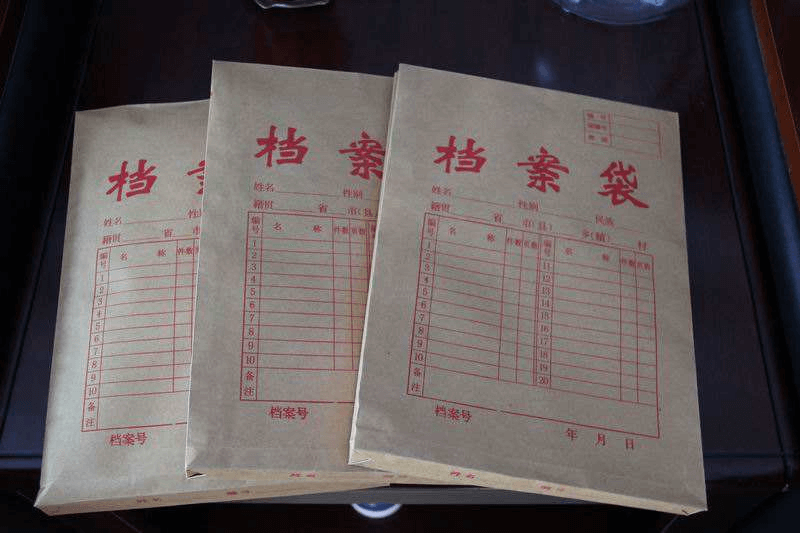 档
姓名
籍贯 省 市
编号 名 称 件数
1
2
3
4
5
6
7
8
9
10
备注
档案号
档 案
姓名 性别
籍贯 省 市(县
编号 名 称 件数 页数
1
2
3
4
5
6
7
8
9
10
备注
档案号
姓名
档 案 袋
姓名 性别 民族
籍贯 省 市(县) 乡(镇) 村
编号 名 称 件数 页数 编号 名 称 件数 页数
1 11
2 12
3 13
4 14
5 15
6 16
7 17
8 18
9 19
10 20
备注
档案号 年 月 日
姓名